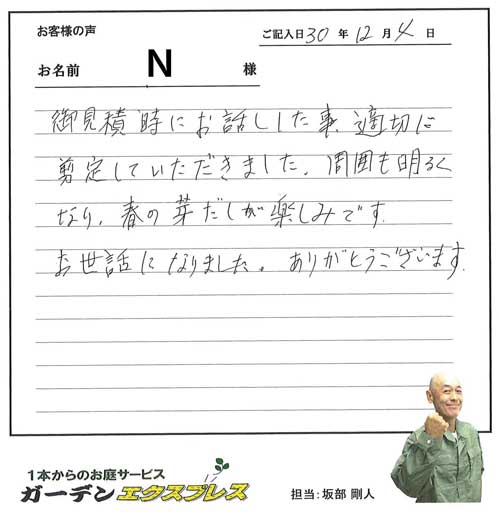 お客様の声
ご記入日 30 年 12 月 4 日
お名前 N 様
御見積時にお話しした事、適切に
剪定していただきました。周囲も明るく
なり、春の芽だしが楽しみです。
お世話になりました。ありがとうございます。
1本からのお庭サービス
ガーデンエクスプレス
担当:坂部 剛人